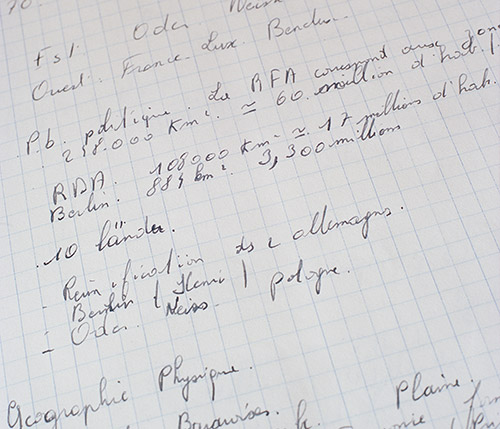 70.
Est. Oder Neisse
Ouest. France. Lux. Benelux.
Pb. politique. La RFA correspond aux zones
248.000 Km². ≃ 60. million d'hab.
RDA. 108000 Km² ≃ 17 millions d'hab.
Berlin: 884 km². 3,300 millions
.10 länder
- Reunification ds 2 allemagnes.
- Berlin
- Oder. Neiss. Pologne.
Geographie Physique.
Plaine.